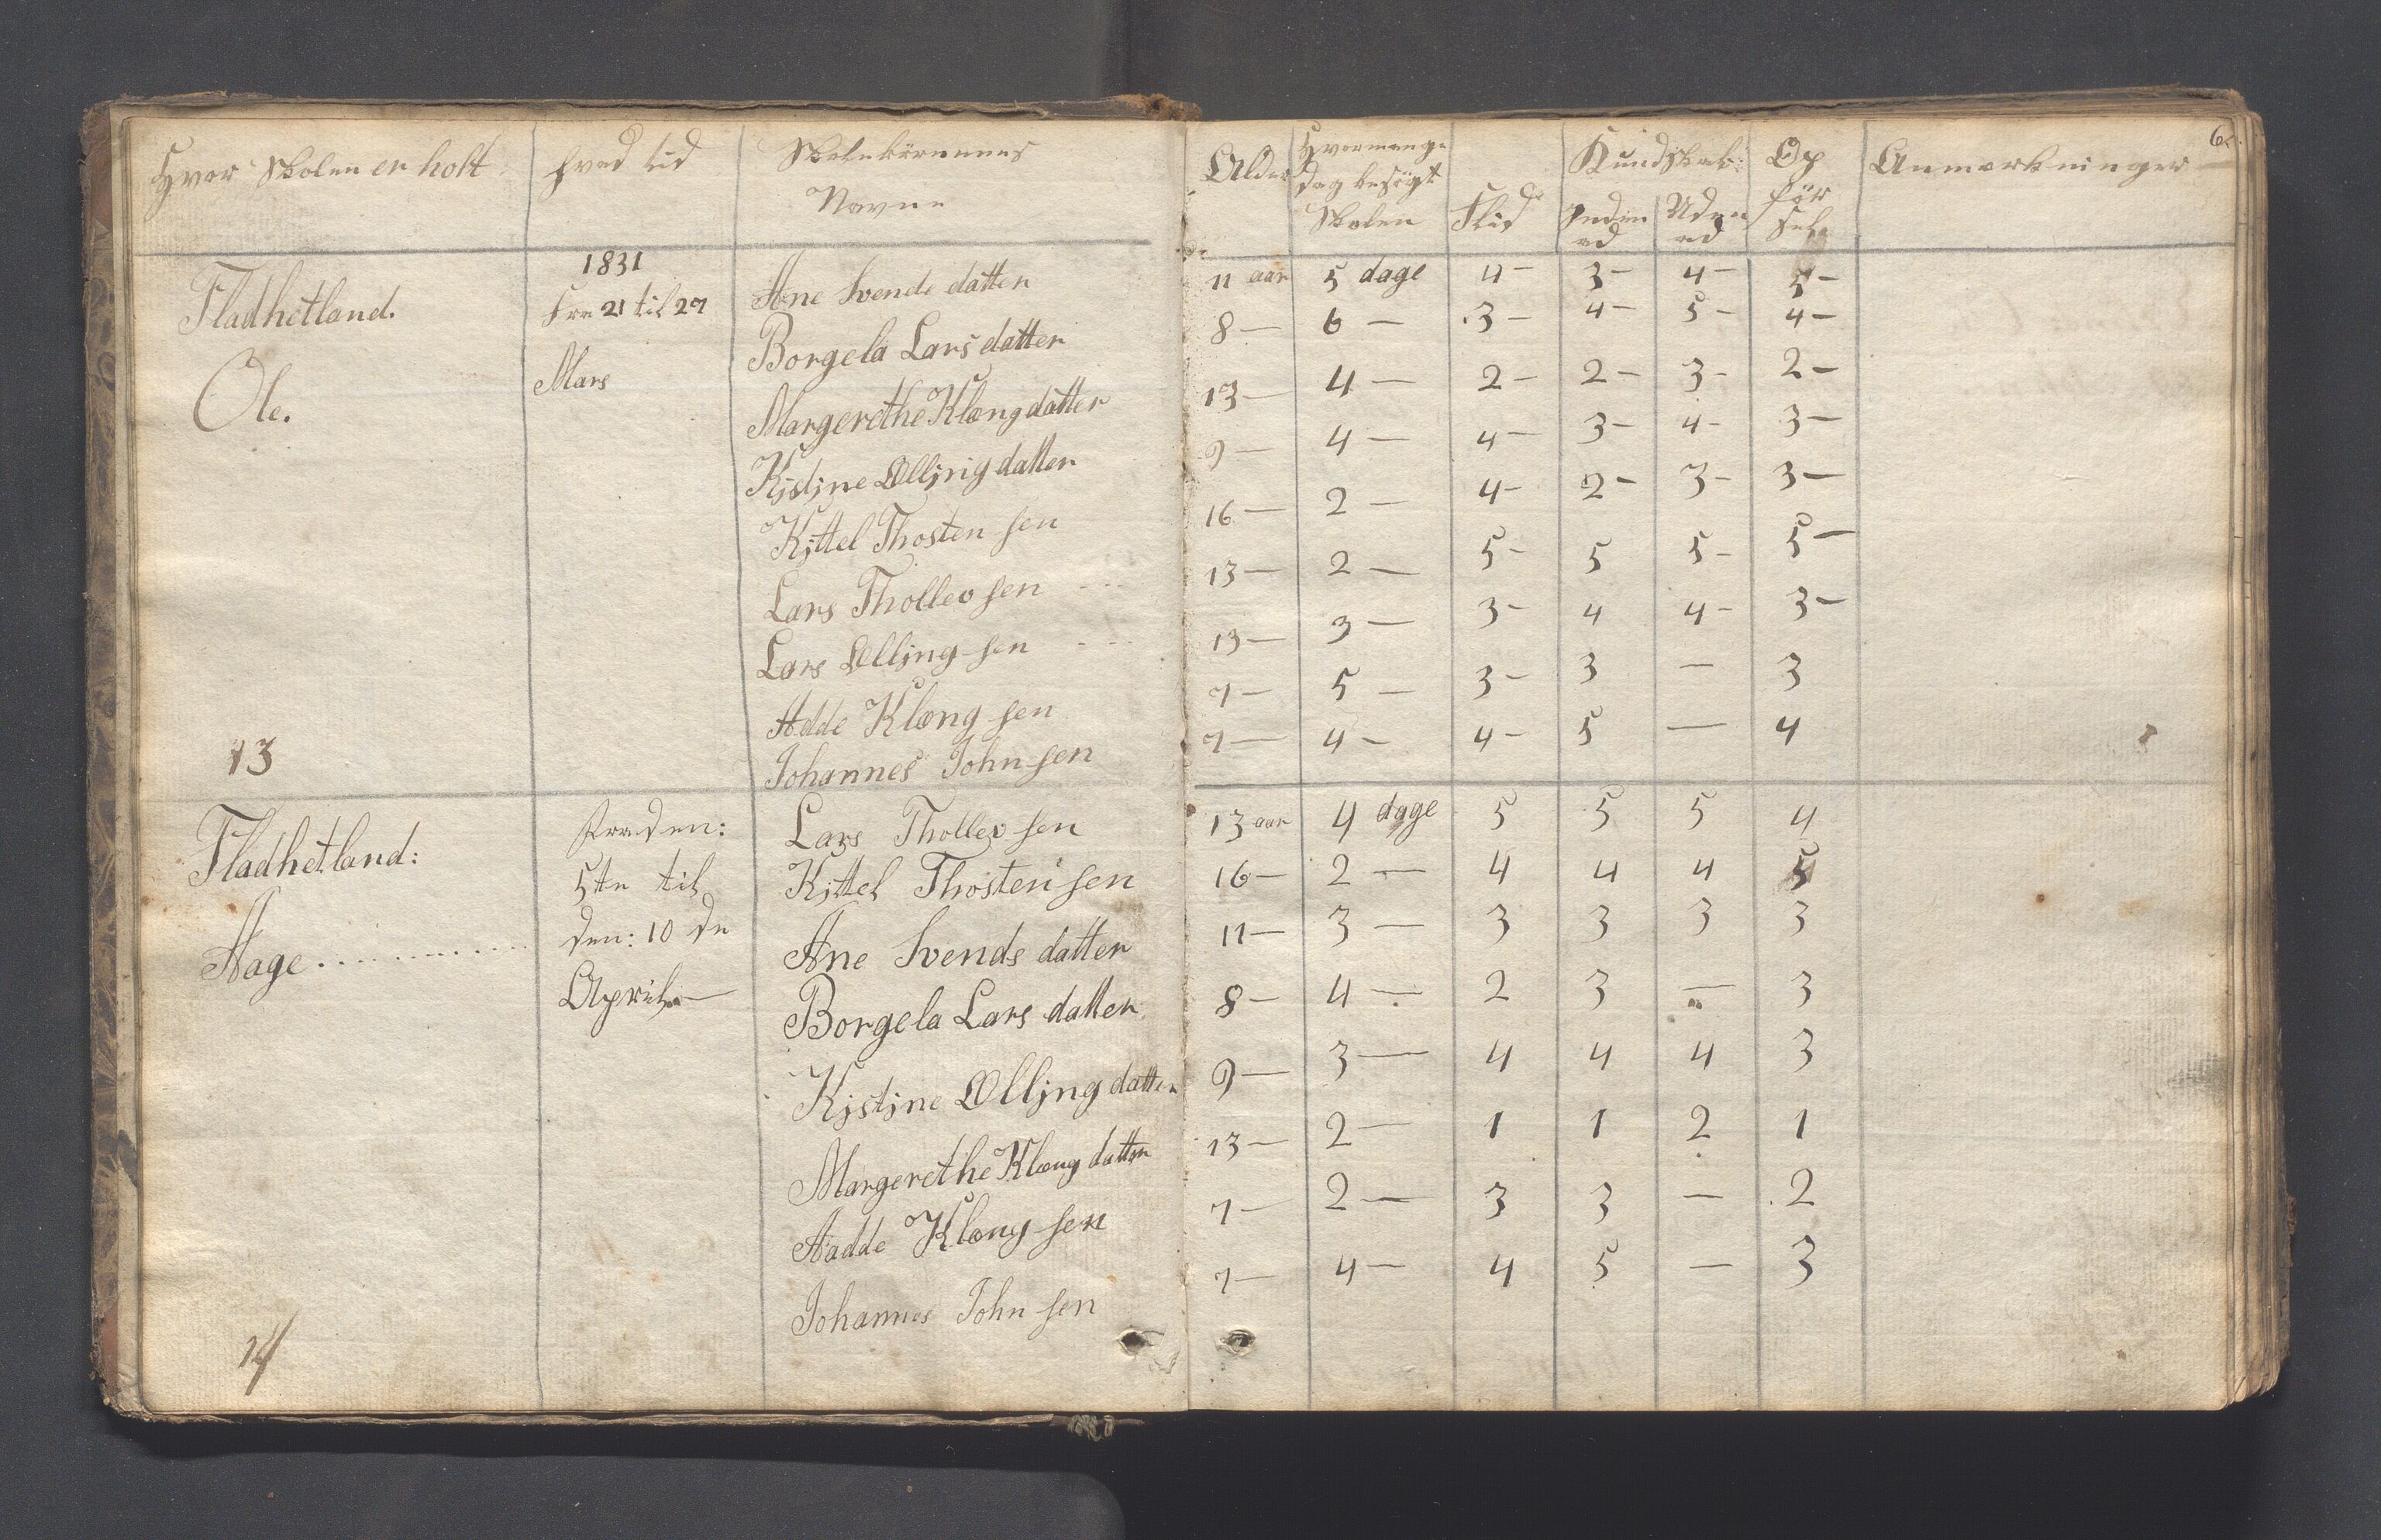 Hvor Skolen er holt
hvad tid
Skolebörnenes
Navne
Alder
Hvormange
dag besögt
Skolen
Flid
Kundskab:
Inden
ad
Uden
ad
Op
för
sel
Anmærkninger
Fladhetland.
Ole.
13
1831
Fra 21 til 27
Mars
Ane Svends datter 11 aar 5 dage 4 — 3 — 4 — 5 —
Borgela Lars datter 8 — 6 — 3 — 4 — 5 — 4 —
Margerethe Klæng datter 13 — 4 — 2 — 2 — 3 — 2 —
Kistine Ølling datter 9 — 4 — 4 — 3 — 4 — 3 —
Kittel Thosten sen 16 — 2 — 4 — 2 — 3 — 3 —
Lars Thollev sen 13 — 2 — 5 — 5 5 — 5 —
Lars Ølling sen 13 — 3 — 3 — 4 4 — 3 —
Adde Klæng sen 7 — 5 — 3 — 3 — 3
Johannes John sen 7 — 4 — 4 — 5 — 4
Fladhetland:
Aage
14
Fra den:
5te til
den: 10 de
April
Lars Thollev sen 13 aar 4 dage 5 5 5 4
Kittel Thosten sen 16 — 2 — 4 4 4 5
Ane Svends datter 11 — 3 — 3 3 3 3
Borgela Lars datter 8 — 4 — 2 3 — 3
Kistine Ølling datter 9 — 3 — 4 4 4 3
Margerethe Klæng datter 13 — 2 — 1 1 2 1
Aadde Klæng sen 7 — 2 — 3 3 — 2
Johannes John sen 7 — 4 — 4 5 — 3